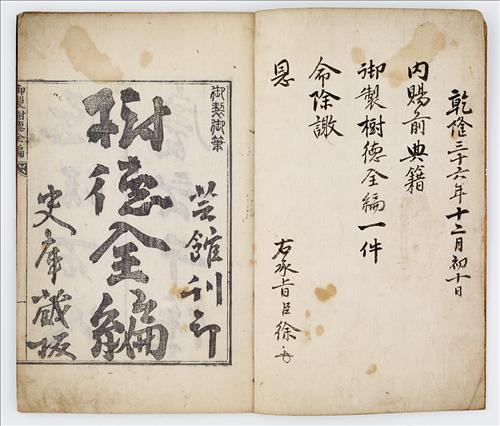 乾隆三十六年十二月初十日
內賜前典籍
御製樹德全編一件
命除謝
恩
右承旨臣徐
御製御筆
芸館刊印
樹德全編
史庫藏板
御製樹德全編